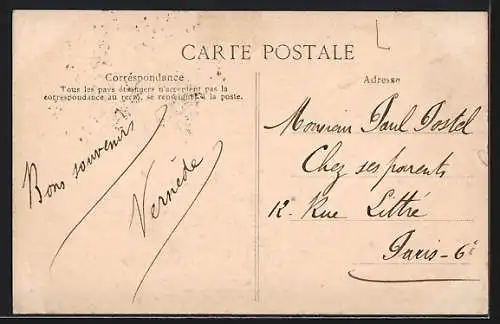 CARTE POSTALE
Correspondance
Tous les pays étrangers n'acceptent pas la
correspondance au recto, se renseigner à la poste.
Bons souvenirs
Vernède
Adresse
Monsieur Paul Postel
Chez ses parents
12 - Rue Littré
Paris - 6e